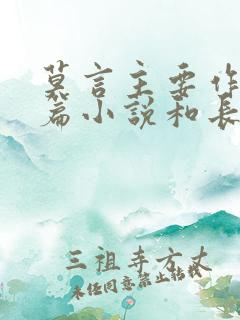 莫言主要作
篇小说和长
三祖寺方丈
未经同意禁止转载